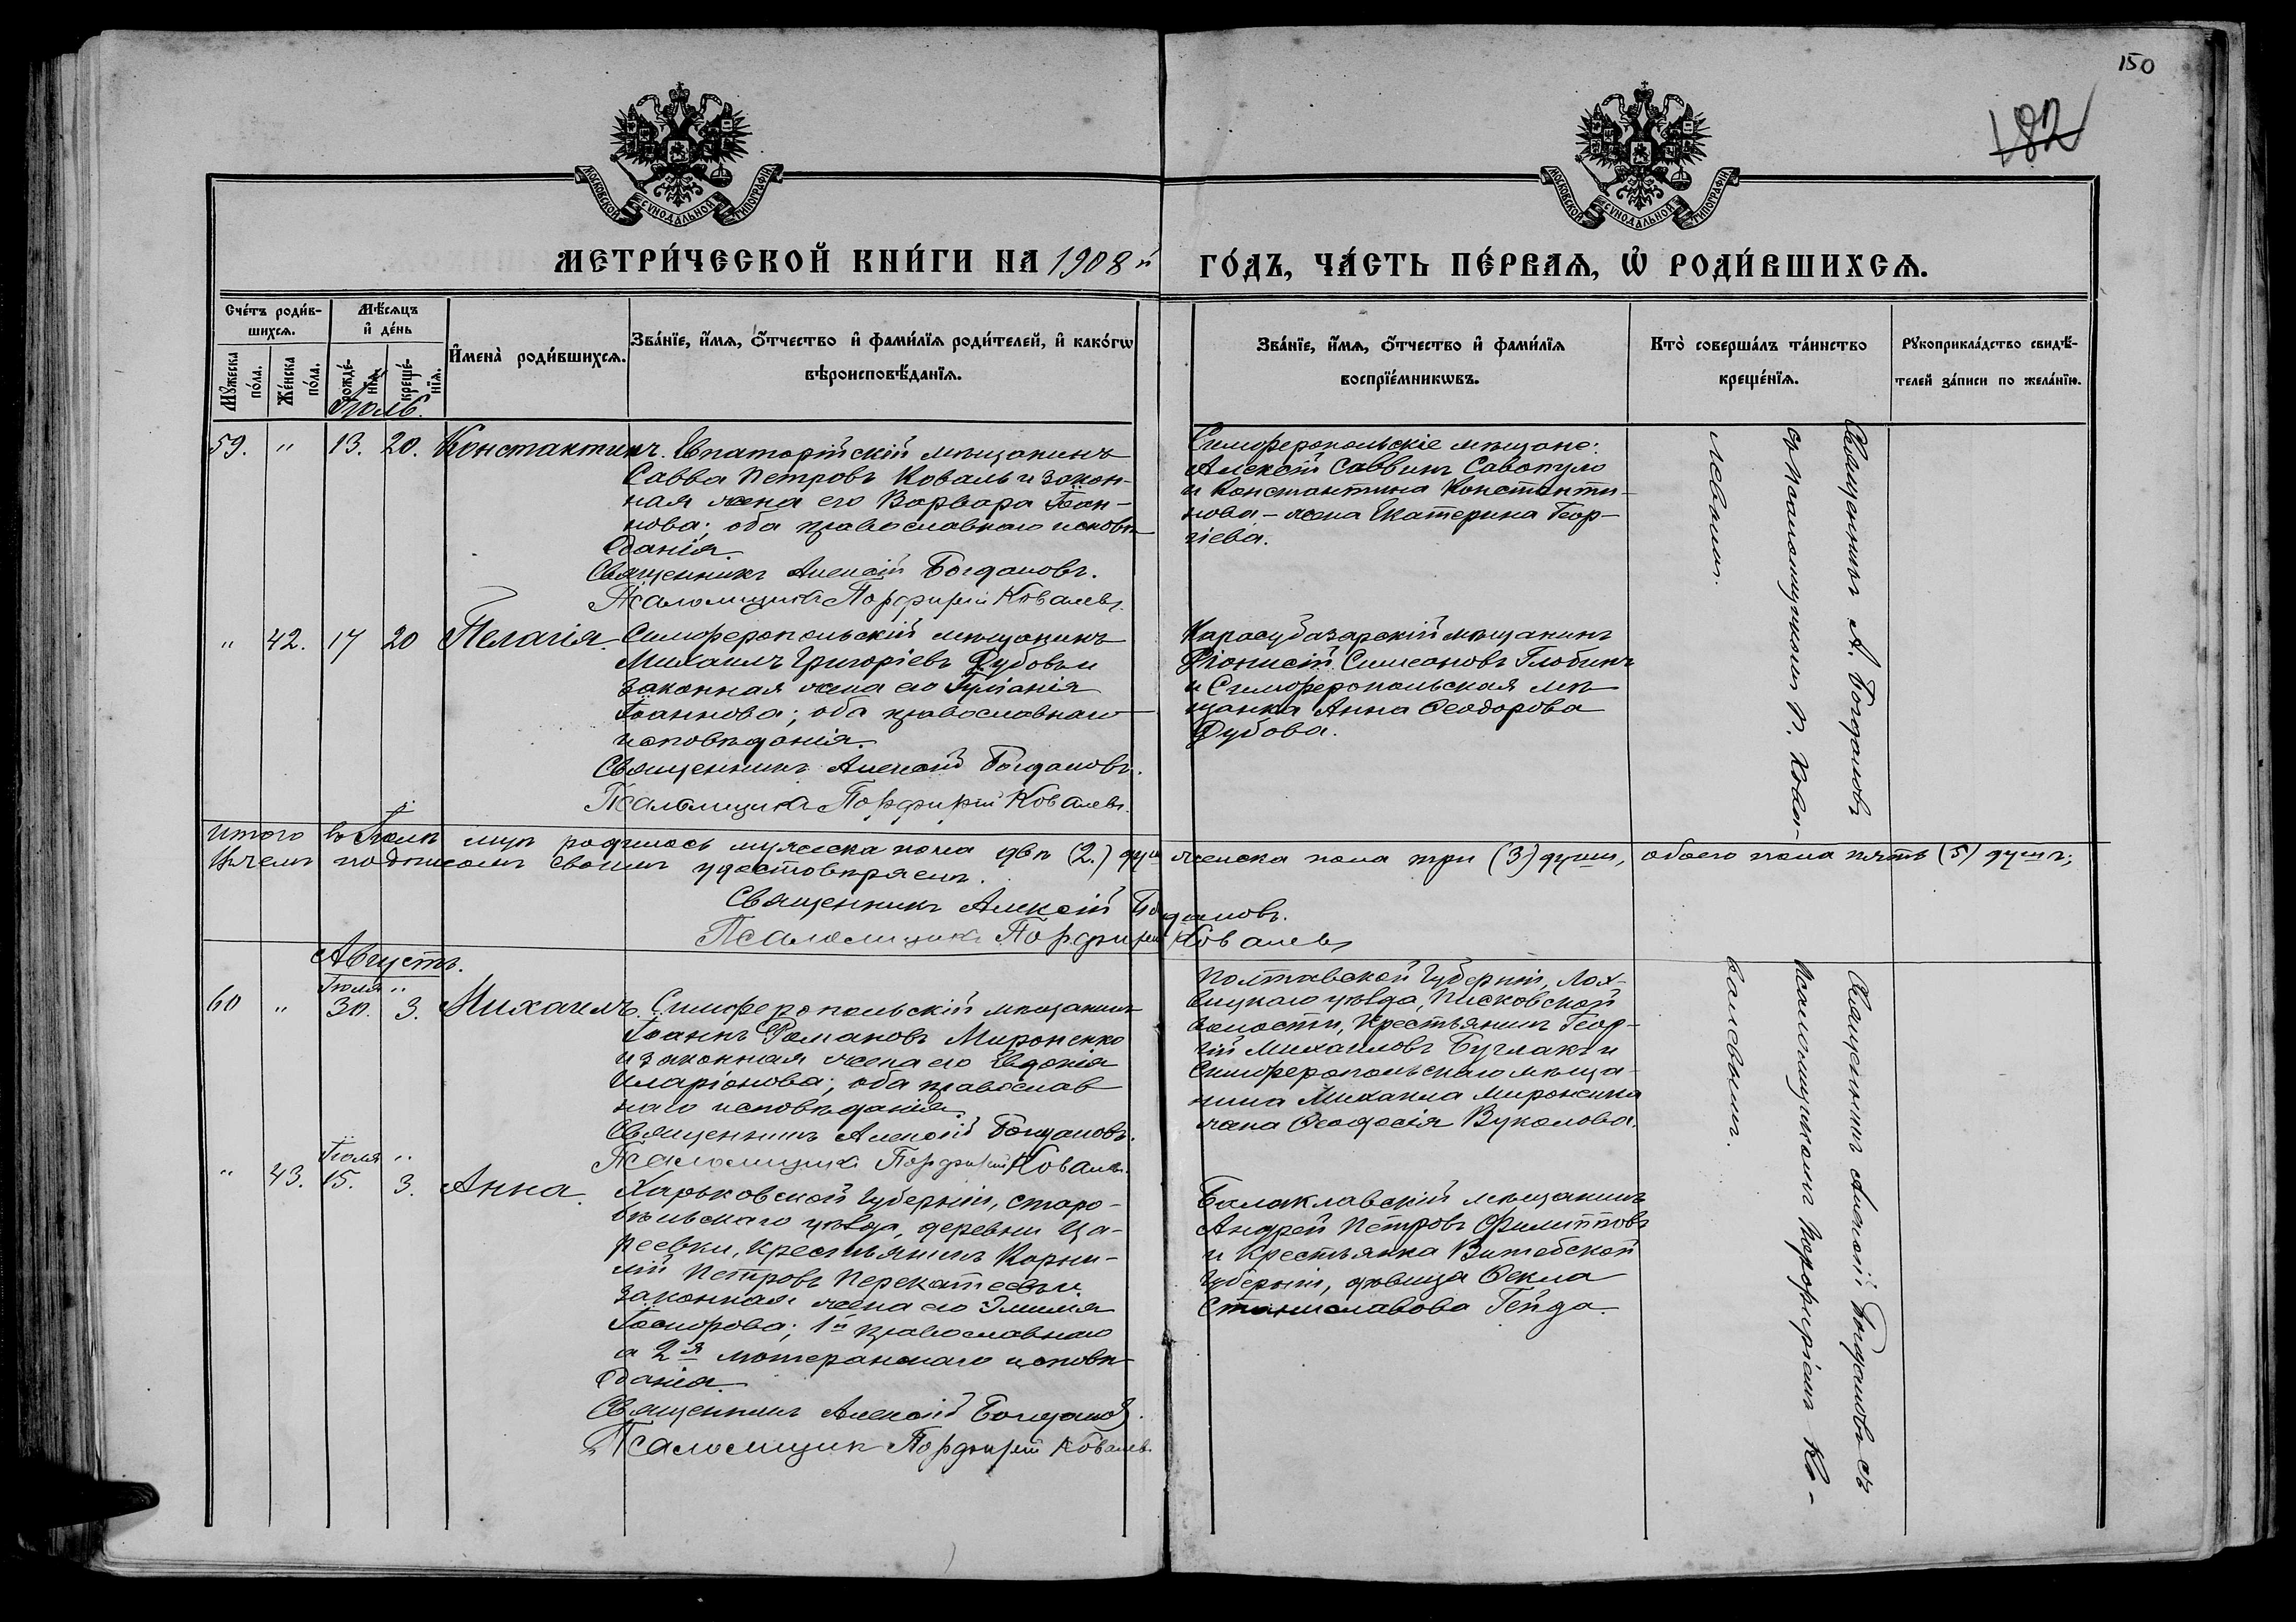 150
182
МОСКОВСКОЙ СѴНОДАЛЬНОЙ ТИПОГРАФІИ
МОСКОВСКОЙ СѴНОДАЛЬНОЙ ТИПОГРАФІИ
МЕТРИ́ЧЕСКОЙ КНИ́ГИ НА 1908й
ГО́ДЪ, ЧА́СТЬ ПЕ́РВАѦ, Ѡ РОДИ́ВШИХСѦ.
Сче́тъ роди́в-
шихсѧ.
Мꙋ́жеска по́ла.
Же́нска по́ла.
Мѣ́сѧцъ
и҆ де́нь
рожде́-
нїѧ.
креще́-
нїѧ.
И҆мена̀ роди́вшихсѧ.
Зва́нїе, и҆́мѧ, ѻ҆́тчество и҆ фами́лїѧ роди́телей, и҆ како́гѡ
вѣроисповѣ́данїѧ.
Зва́нїе, и҆́мѧ, ѻ҆́тчество и҆ фами́лїѧ
воспрїе́мникѡвъ.
Кто̀ соверша́лъ та́инство
креще́нїѧ.
Рꙋкоприкла́дство свидѣ́-
телей за́писи по жела́нїю.
Іюль.
59. " 13. 20. Константинъ. Евпаторійскій мѣщанинъ
Савва Петровъ Коваль и закон-
ная жена его Варвара Іоан-
нова; оба православнаго исповѣ-
данія.
Священникъ Алексій Богдановъ.
Псаломщикъ Порфирій Ковалевъ.
Симферопольскіе мѣщане:
Алексѣй Саввинъ Савопуло
и Константина Константи-
нова - жена Екатерина Геор-
гіева.
Священникъ А. Богдановъ
съ Псаломщикомъ П. Кова-
левымъ.
" 42. 17 20 Пелагія. Симферопольскій мѣщанинъ
Михаилъ Григоріевъ Дубовъ и
законная жена его Іуліанія
Іоаннова; оба православнаго
исповѣданія.
Священникъ Алексій Богдановъ.
Псаломщикъ Порфирій Ковалевъ.
Карасубазарскій мѣщанинъ
Діонисій Симеоновъ Глобинъ
и Симферопольская мѣ-
щанка Анна Ѳеодорова
Дубова.
Итого въ Іюлѣ мцѣ родилось мужеска пола двѣ (2.) душ женска пола три (3) души, обоего пола пять (5) душъ;
въ чемъ подписомъ своимъ удостовѣряемъ.
Священникъ Алексій Богдановъ.
Псаломщикъ Порфирій Ковалевъ
Августъ.
Іюля "
60 " 30. 3. Михаилъ. Симферопольскій мѣщанинъ
Іоаннъ Романовъ Мироненко
и законная жена его Евдокія
Иларіонова; оба православ
наго исповѣданія.
Священникъ Алексій Богдановъ.
Псаломщикъ Порфирій Ковалевъ.
Полтавской Губерніи, Лох-
вицкаго уѣзда, Писковской
волости, крестьянинъ Геор-
гій Михаиловъ Бурлакъ и
Симферопольскаго мѣща-
нина Михаила Мироненка
жена Ѳеодосія Вуколова.
Священникъ Алексій Богдановъ съ
Псаломщикомъ Порфиріемъ Ко-
валевымъ.
Іюля "
" 43. 15. 3. Анна. Харьковской Губерніи, Старо-
бѣльскаго уѣзда, деревни Ца-
реевки, крестьянинъ Корни-
лій Петровъ Перекатеевъ и
законная жена его Эмилія
1й православнаго
а 2я лютеранскаго исповѣ-
данія.
Священникъ Алексій Богдановъ.
Псаломщикъ Порфирій Ковалевъ.
Балаклавскій мѣщанинъ
Андрей Петровъ Филипповъ
и крестьянка Витебской
Губерніи, дѣвица Ѳекла
Станиславова Гейда.